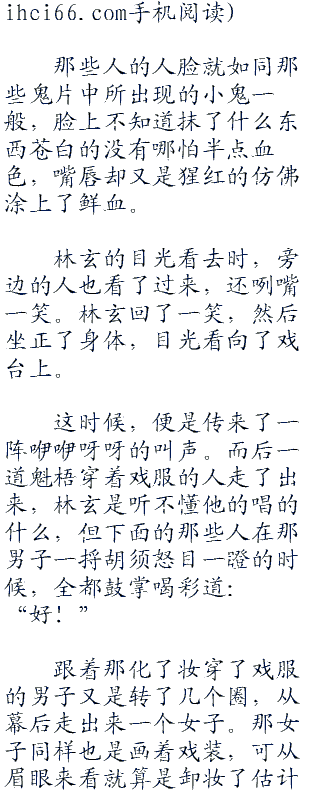 ihci66.com手机阅读)
那些人的人脸就如同那
些鬼片中所出现的小鬼一
般，脸上不知道抹了什么东
西苍白的没有哪怕半点血
色，嘴唇却又是猩红的仿佛
涂上了鲜血。
林玄的目光看去时，旁
边的人也看了过来，还咧嘴
一笑。林玄回了一笑，然后
坐正了身体，目光看向了戏
台上。
这时候，便是传来了一
阵咿咿呀呀的叫声。而后一
道魁梧穿着戏服的人走了出
来，林玄是听不懂他的唱的
什么，但下面的那些人在那
男子一捋胡须怒目一瞪的时
候，全都鼓掌喝彩道：
“好！”
跟着那化了妆穿了戏服
的男子又是转了几个圈，从
幕后走出来一个女子。那女
子同样也是画着戏装，可从
眉眼来看就算是卸妆了估计